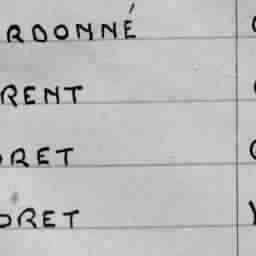 RDONNÉ
RENT
ORET
ORET